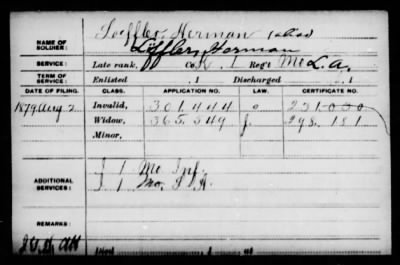 NAME OF SOLDIER: Loeffler, Herman (alias)
Löffler, Herman
SERVICE: Late rank, Co. 1 Reg't Mo L.A.
TERM OF SERVICE: Enlisted , 1 Discharged , 1
DATE OF FILING. CLASS. APPLICATION NO. LAW. CERTIFICATE NO.
1879 Aug. 2 Invalid, 301444 231.030
Widow, 365.549 298.181
Minor,
ADDITIONAL SERVICES: J 1 Mo Inf.
J 1 Mo.
REMARKS: